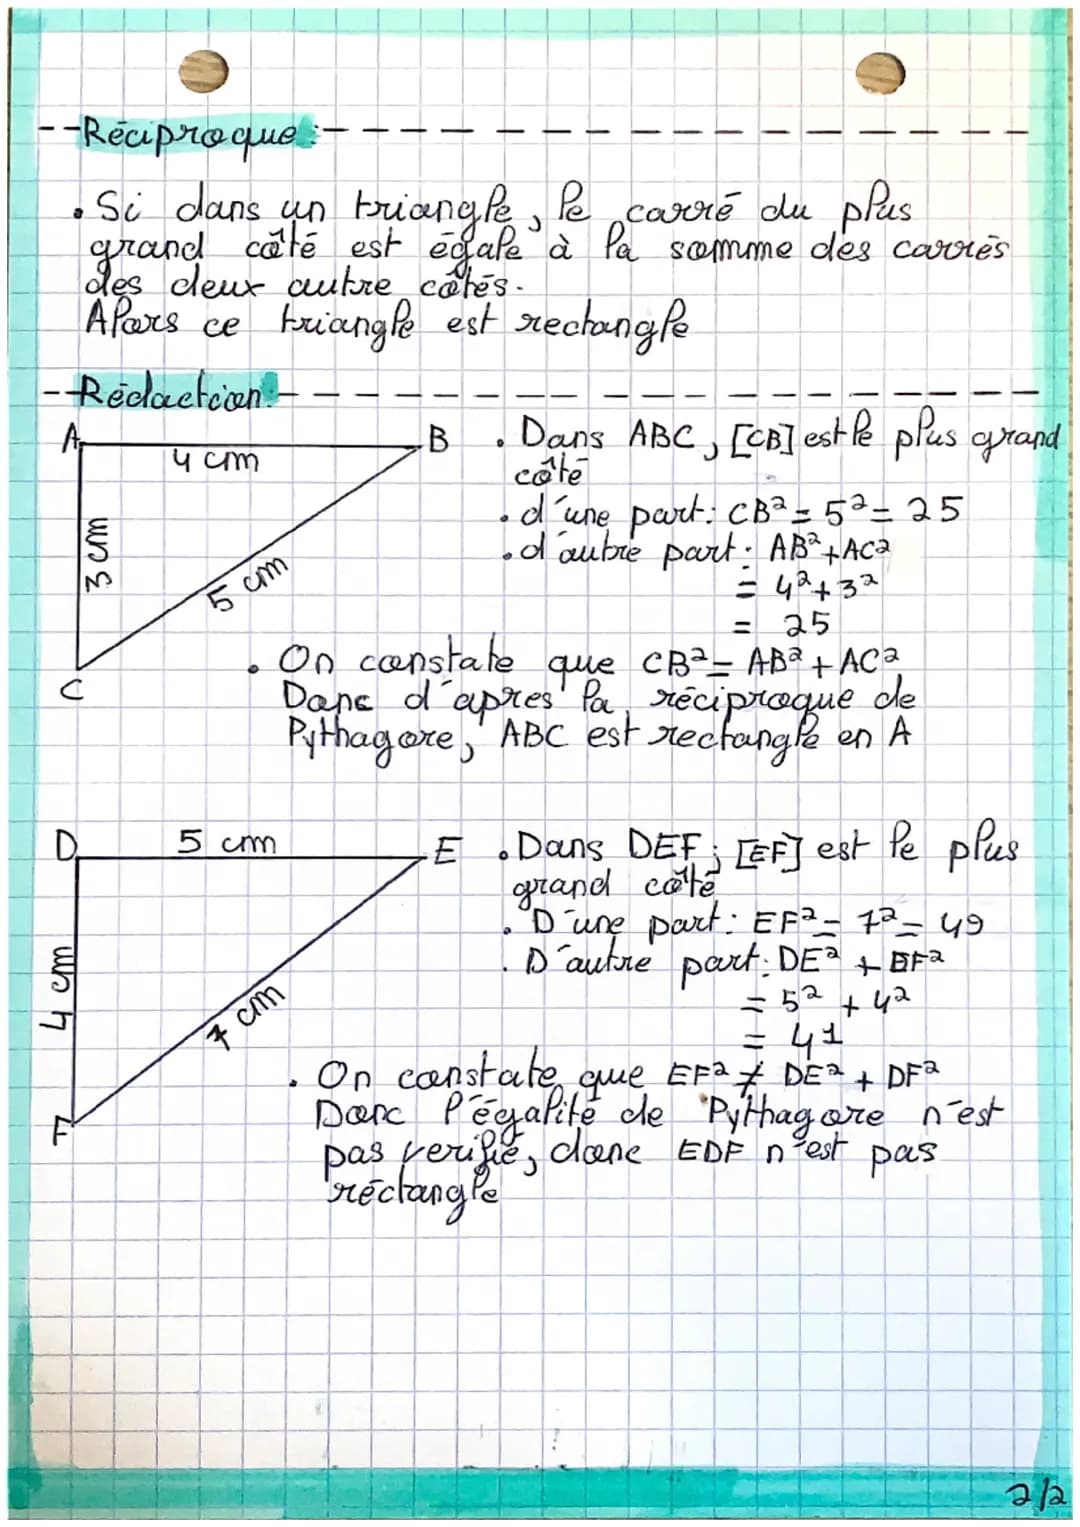 --Réciproque:
. Si dans un triangle, le carré du plus
grand côté est égale à la somme des carrés
des deux autre côtés.
Alors ce triangle est rectangle
--Rédaction:
A
B
4 cm
3 cm
5 cm
C
. Dans ABC, [CB] est le plus grand
côté
. d'une part: CB² = 5² = 25
. d'autre part: AB² + AC²
= 4² + 3²
= 25
. On constate que CB² = AB² + AC²
Donc d'apres la réciproque de
Pythagore, ABC est rectangle en A
D
5 cm
E
4 cm
7 cm
F
. Dans DEF; [EF] est le plus
grand côté
. D'une part: EF² = 7² = 49
. D'autre part: DE² + DF²
= 5² + 4²
= 41
. On constate que EF² ≠ DE² + DF²
Donc l'égalité de Pythagore n'est
pas verifié, donc EDF n'est pas
réctangle
2/2